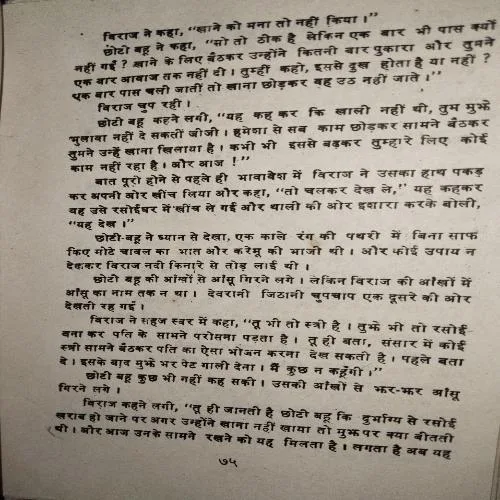 बिराज ने कहा, "खाने को मना तो नहीं किया।"
छोटी बहू ने कहा, "सो तो ठीक है लेकिन एक बार भी पास क्यों
नहीं गई ? खाने के लिए बैठकर उन्होंने कितनी बार पुकारा और तुमने
एक बार आवाज तक नहीं दी। तुम्हीं कहो, इससे दुख होता है या नहीं ?
एक बार पास चली जातीं तो खाना छोड़कर वह उठ नहीं जाते।"
बिराज चुप रही।
छोटी बहू कहने लगी, "यह कह कर कि खाली नहीं थी, तुम मुझे
भुलावा नहीं दे सकतीं जीजी। हमेशा से सब काम छोड़कर सामने बैठकर
तुमने उन्हें खाना खिलाया है। कभी भी इससे बढ़कर तुम्हारे लिए कोई
काम नहीं रहा है। और आज !"
बात पूरी होने से पहले ही भावावेश में बिराज ने उसका हाथ पकड़
कर अपनी ओर खींच लिया और कहा, "तो चलकर देख ले," यह कहकर
वह उसे रसोईघर में खींच ले गई और थाली की ओर इशारा करके बोली,
"यह देख।"
छोटी-बहू ने ध्यान से देखा, एक काले रंग की पथरी में बिना साफ
किए मोटे चावल का भात और करेमू की भाजी थी। और कोई उपाय न
देखकर बिराज नदी किनारे से तोड़ लाई थी।
छोटी बहू की आंखों से आँसू गिरने लगे। लेकिन बिराज की आंखों में
आँसू का नाम तक न था। देवरानी जिठानी चुपचाप एक दूसरे की ओर
देखती रह गई।
बिराज ने सहज स्वर में कहा, "तू भी तो स्त्री है। तुझे भी तो रसोई
बना कर पति के सामने परोसना पड़ता है। तू ही बता, संसार में कोई
स्त्री सामने बैठकर पति का ऐसा भोजन करना देख सकती है। पहले बता
दे। इसके बाद मुझे भर पेट गाली देना। मैं कुछ न कहूँगी।"
छोटी बहू कुछ भी नहीं कह सकी। उसकी आंखों से झर-झर आँसू
गिरने लगे।
बिराज कहने लगी, "तू ही जानती है छोटी बहू कि दुर्भाग्य से रसोई
खराब हो जाने पर अगर उन्होंने खाना नहीं खाया तो मुझ पर क्या बीतती
थी। और आज उनके सामने रखने को यह मिलता है। लगता है अब यह
७५